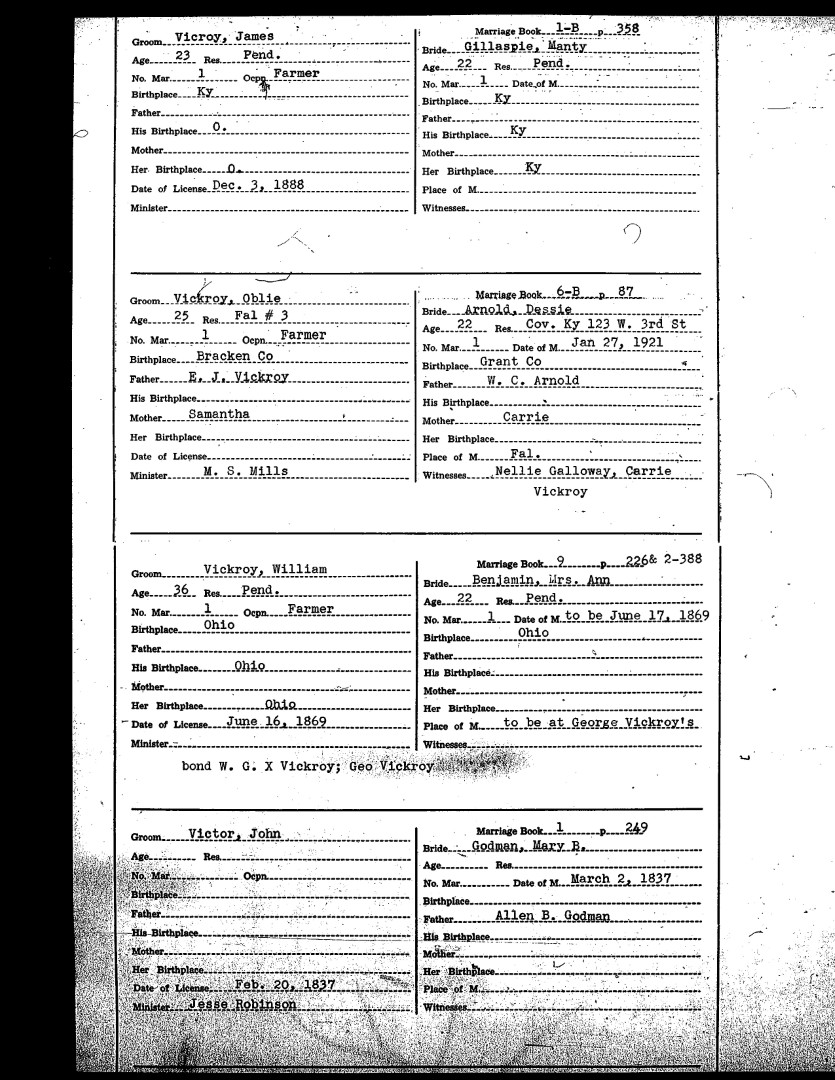 Groom Vicroy, James
Age 23 Res. Pend.
No. Mar. 1 Ocpn. Farmer
Birthplace Ky
Father
His Birthplace O.
Mother
Her Birthplace O.
Date of License Dec. 3, 1888
Minister
Marriage Book 1-B p. 358
Bride Gillaspie, Manty
Age 22 Res. Pend.
No. Mar. 1 Date of M.
Birthplace Ky
Father
His Birthplace Ky
Mother
Her Birthplace Ky
Place of M.
Witnesses
Groom Vickroy, Oblie
Age 25 Res. Fal # 3
No. Mar. 1 Ocpn. Farmer
Birthplace Bracken Co
Father E. J. Vickroy
His Birthplace
Mother Samantha
Her Birthplace
Date of License
Minister M. S. Mills
Marriage Book 6-B p. 87
Bride Arnold, Dessie
Age 22 Res. Cov. Ky 123 W. 3rd St
No. Mar. 1 Date of M. Jan 27, 1921
Birthplace Grant Co
Father W. C. Arnold
His Birthplace
Mother Carrie
Her Birthplace
Place of M. Fal.
Witnesses Nellie Galloway, Carrie
Vickroy
Groom Vickroy, William
Age 36 Res. Pend.
No. Mar. 1 Ocpn. Farmer
Birthplace Ohio
Father
His Birthplace Ohio
Mother
Her Birthplace Ohio
Date of License June 16, 1869
Minister
bond W. G. X Vickroy; Geo Vickroy
Marriage Book 9 p. 226& 2-388
Bride Benjamin, Mrs. Ann
Age 22 Res. Pend.
No. Mar. 1 Date of M. to be June 17, 1869
Birthplace Ohio
Father
His Birthplace
Mother
Her Birthplace
Place of M. to be at George Vickroy's
Witnesses
Groom Victor, John
Age Res.
No. Mar. Ocpn.
Birthplace
Father
His Birthplace
Mother
Her Birthplace
Date of License Feb. 20, 1837
Minister Jesse Robinson
Marriage Book 1 p. 249
Bride Godman, Mary B.
Age Res.
No. Mar. Date of M. March 2, 1837
Birthplace
Father Allen B. Godman
His Birthplace
Mother
Her Birthplace
Place of M.
Witnesses